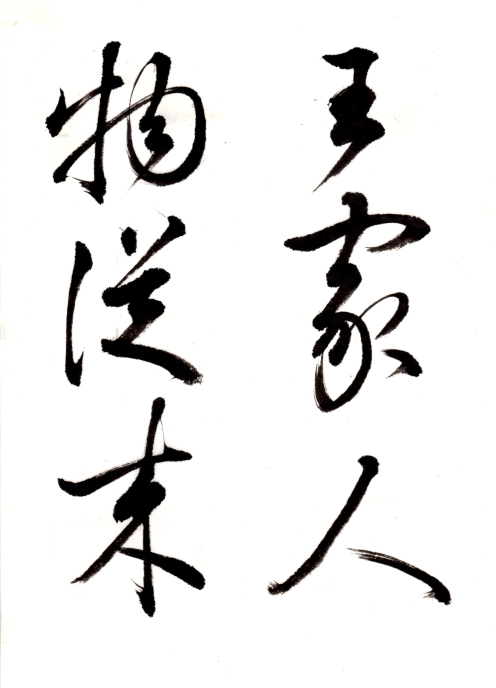 王家人
物従来